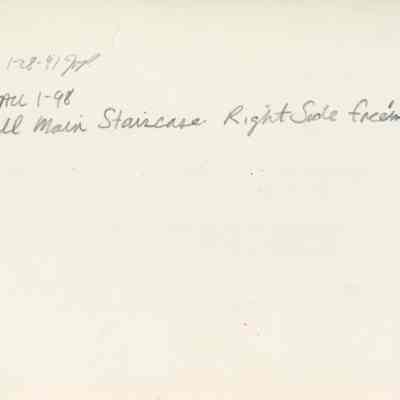 1-28-91
ALL 1-98
ll Main Staircase. Right Side face'm